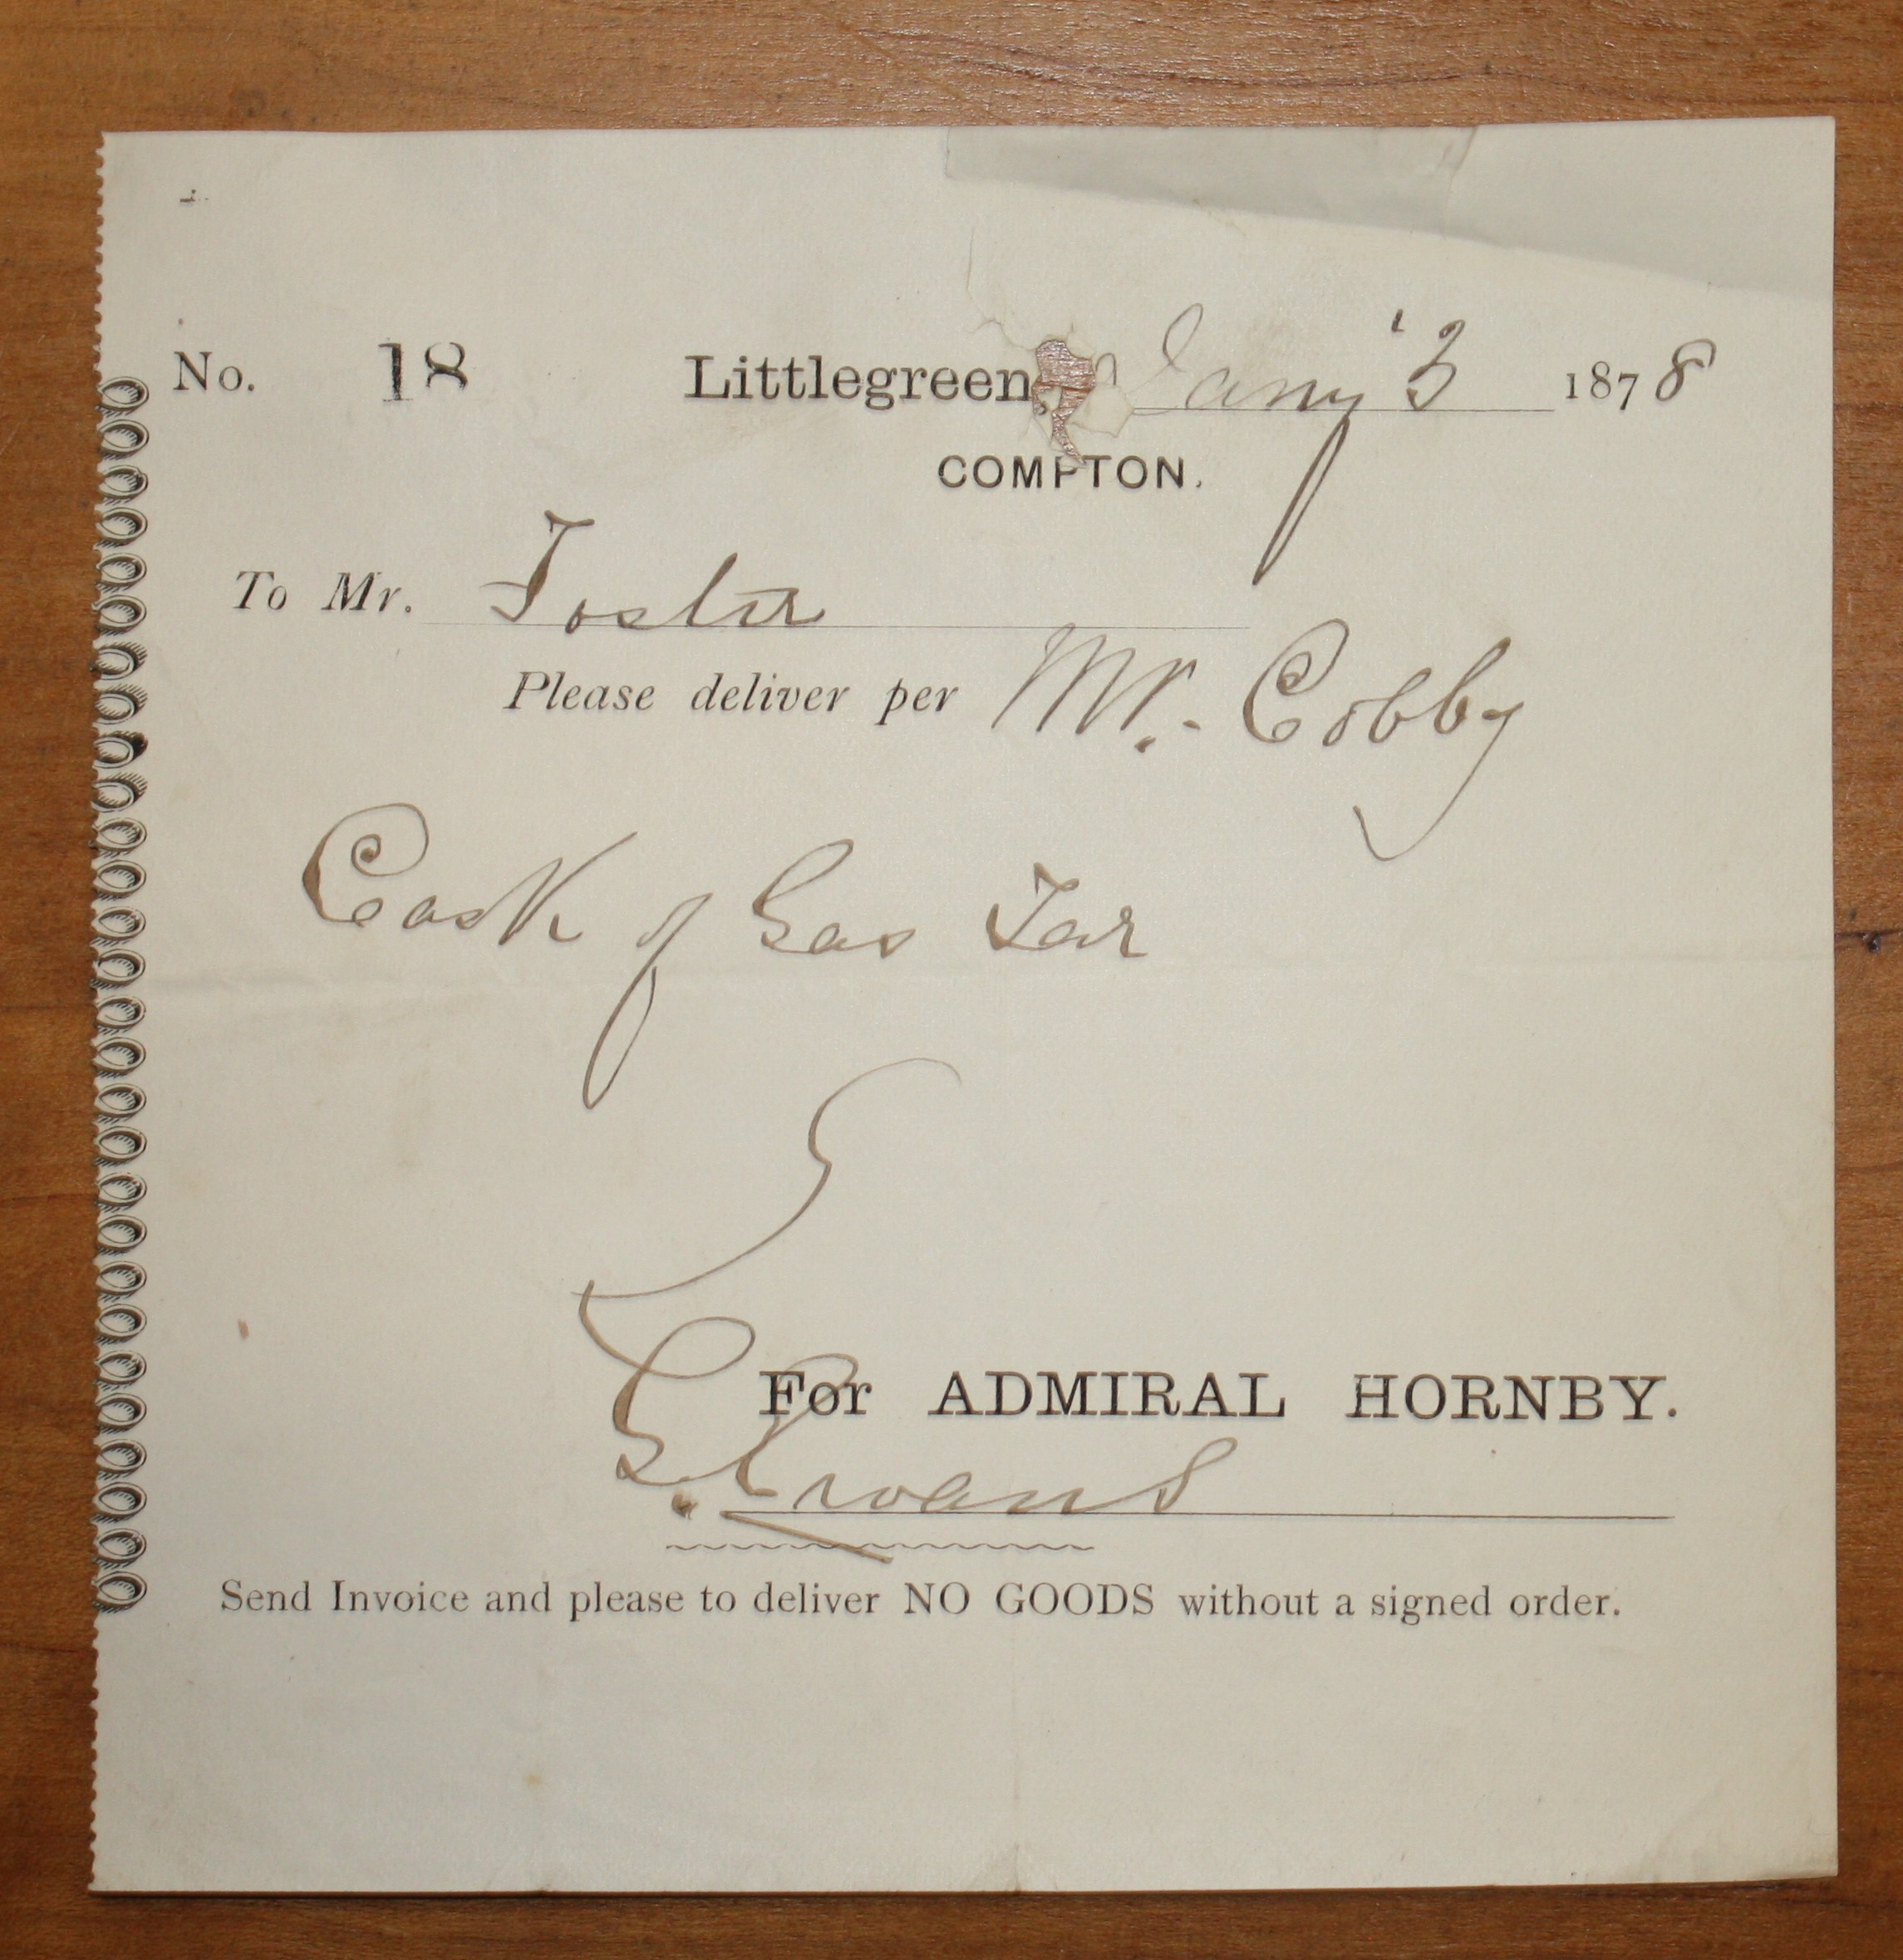 No. 18 Littlegreen, Jany 3 1878
COMPTON.
To Mr. Foster
Please deliver per Mr. Cobby
Cask of Gas Tar
For ADMIRAL HORNBY.
G. Evans
Send Invoice and please to deliver NO GOODS without a signed order.